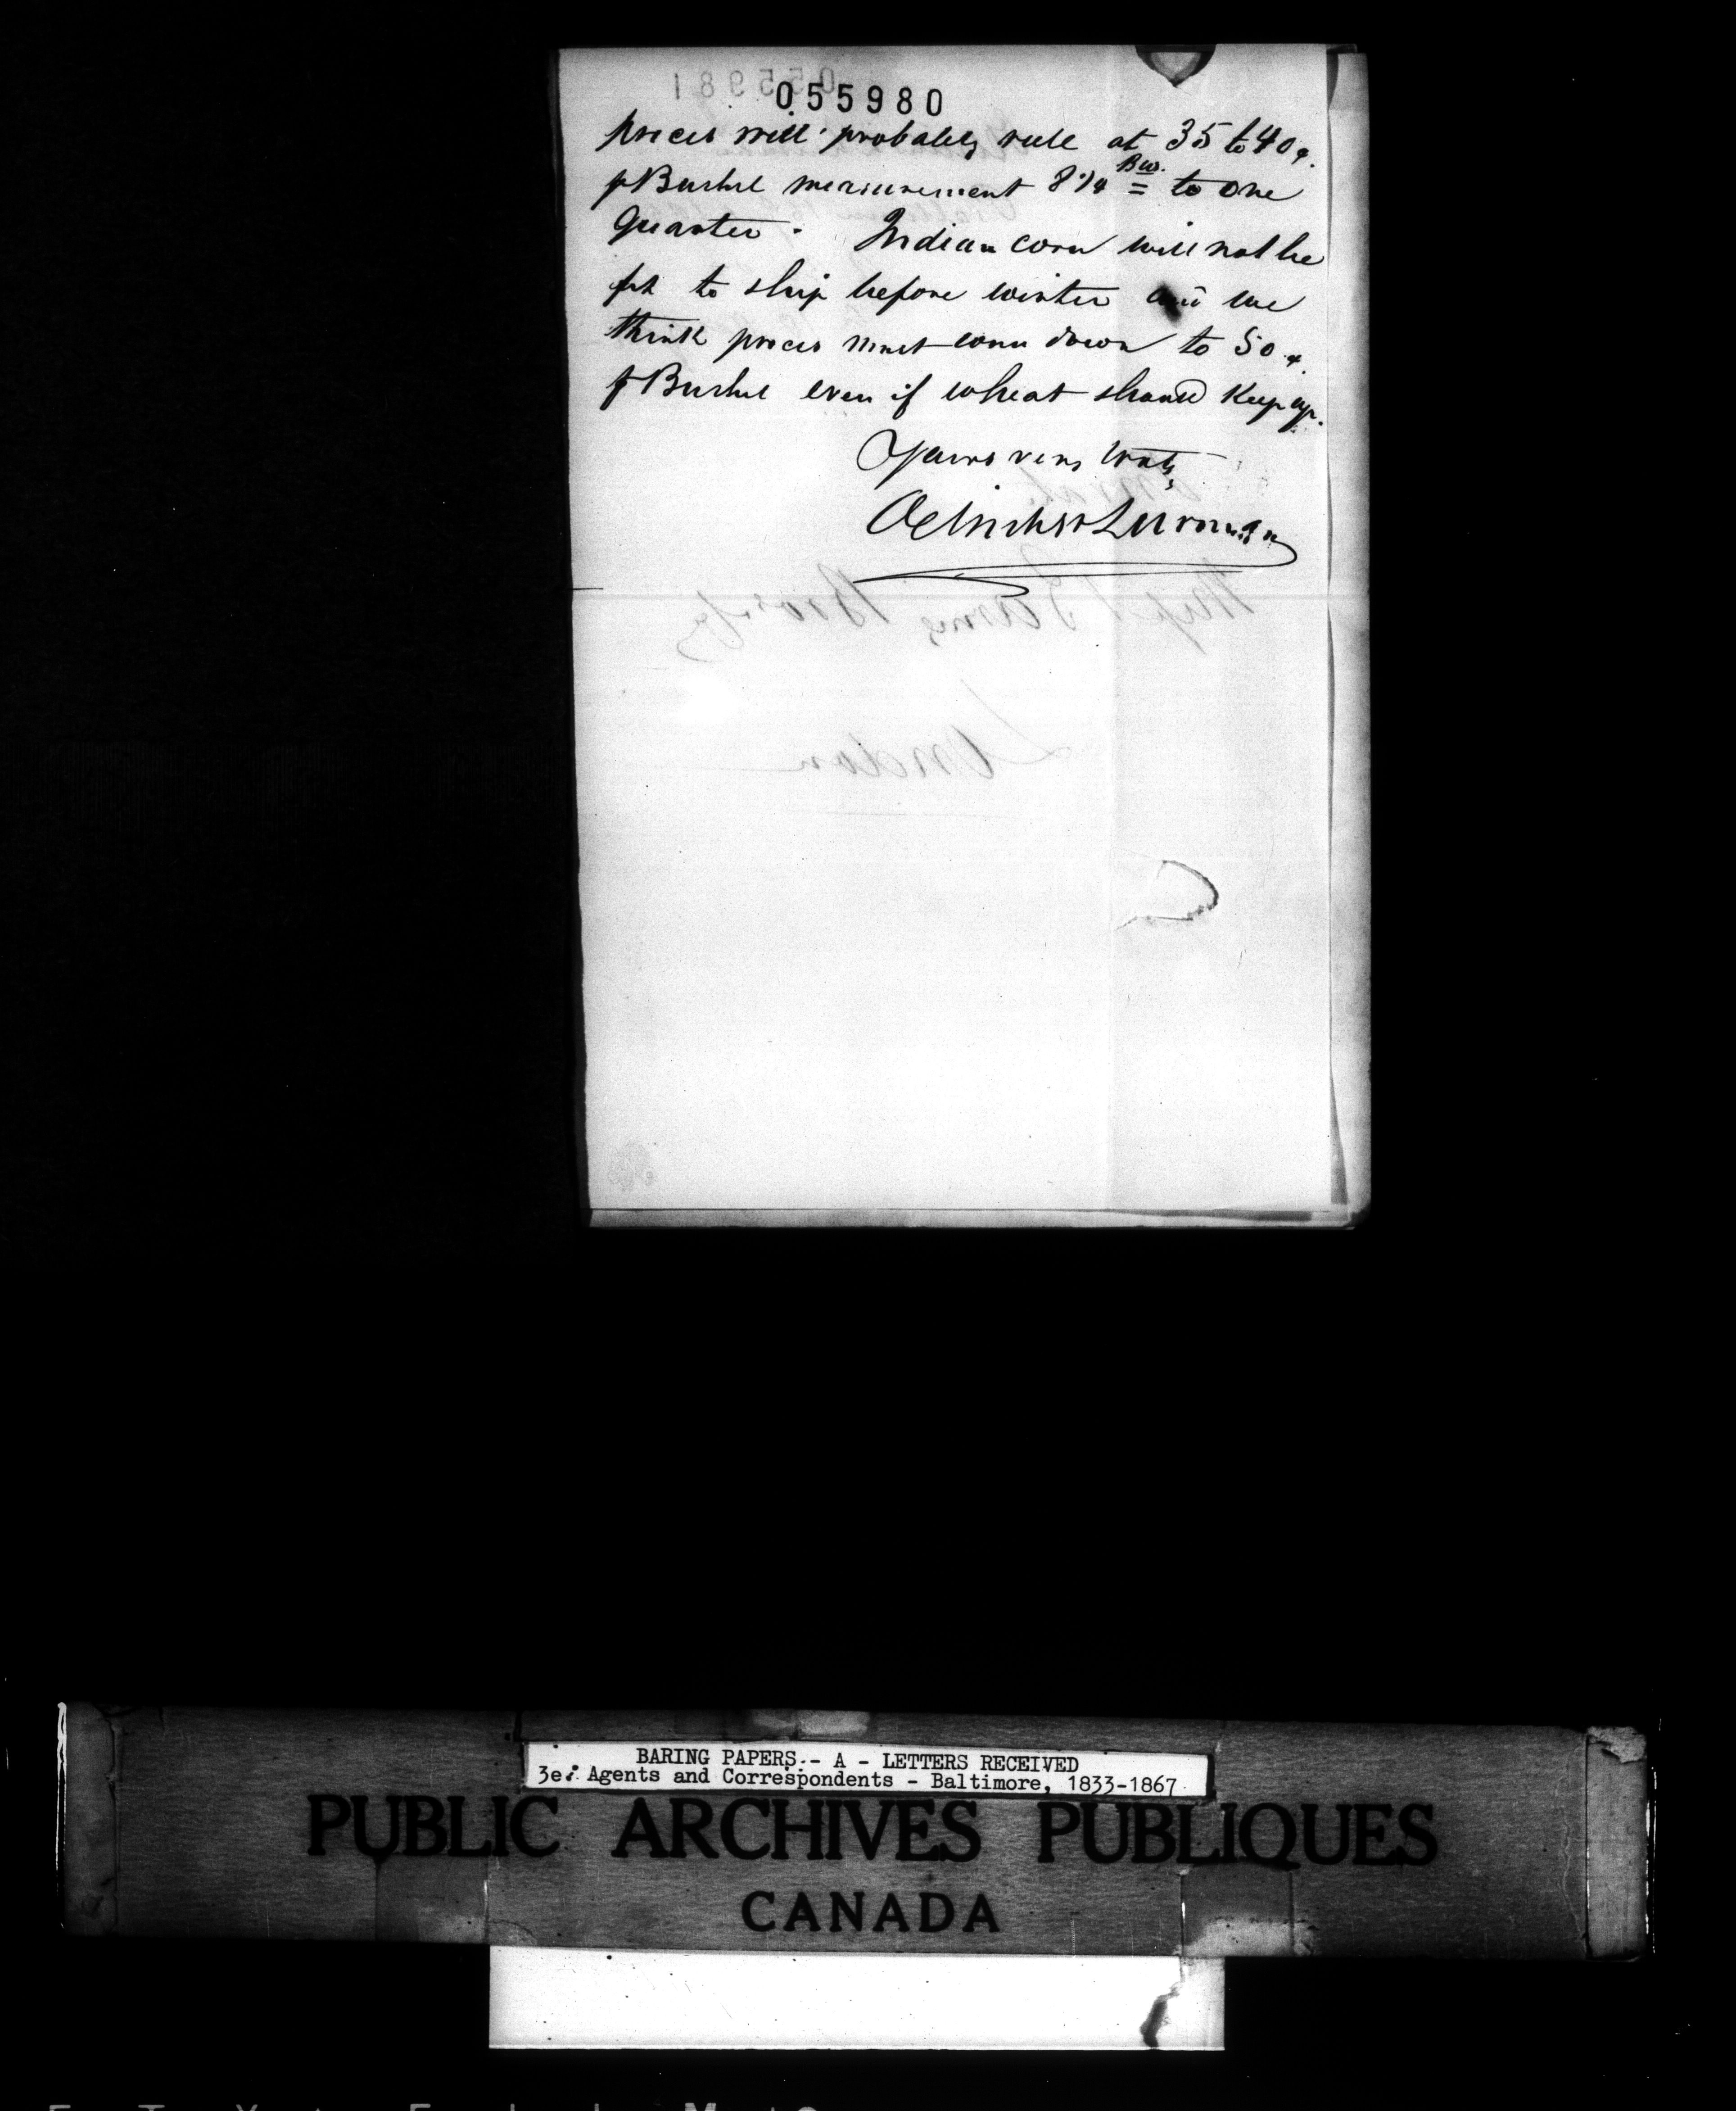 055980
prices will probably rule at 35 to 40¢.
p Bushel measurement 8 1/4 Bus. = to one
Quarter. Indian corn will not be
fit to ship before winter and we
think prices must come down to 50¢
p Bushel even if wheat should keep up.
Yours very truly
Oelrichs & Lurman
Baring Bros & Co
London
BARING PAPERS.- A - LETTERS RECEIVED
3e. Agents and Correspondents - Baltimore, 1833-1867
PUBLIC ARCHIVES PUBLIQUES
CANADA